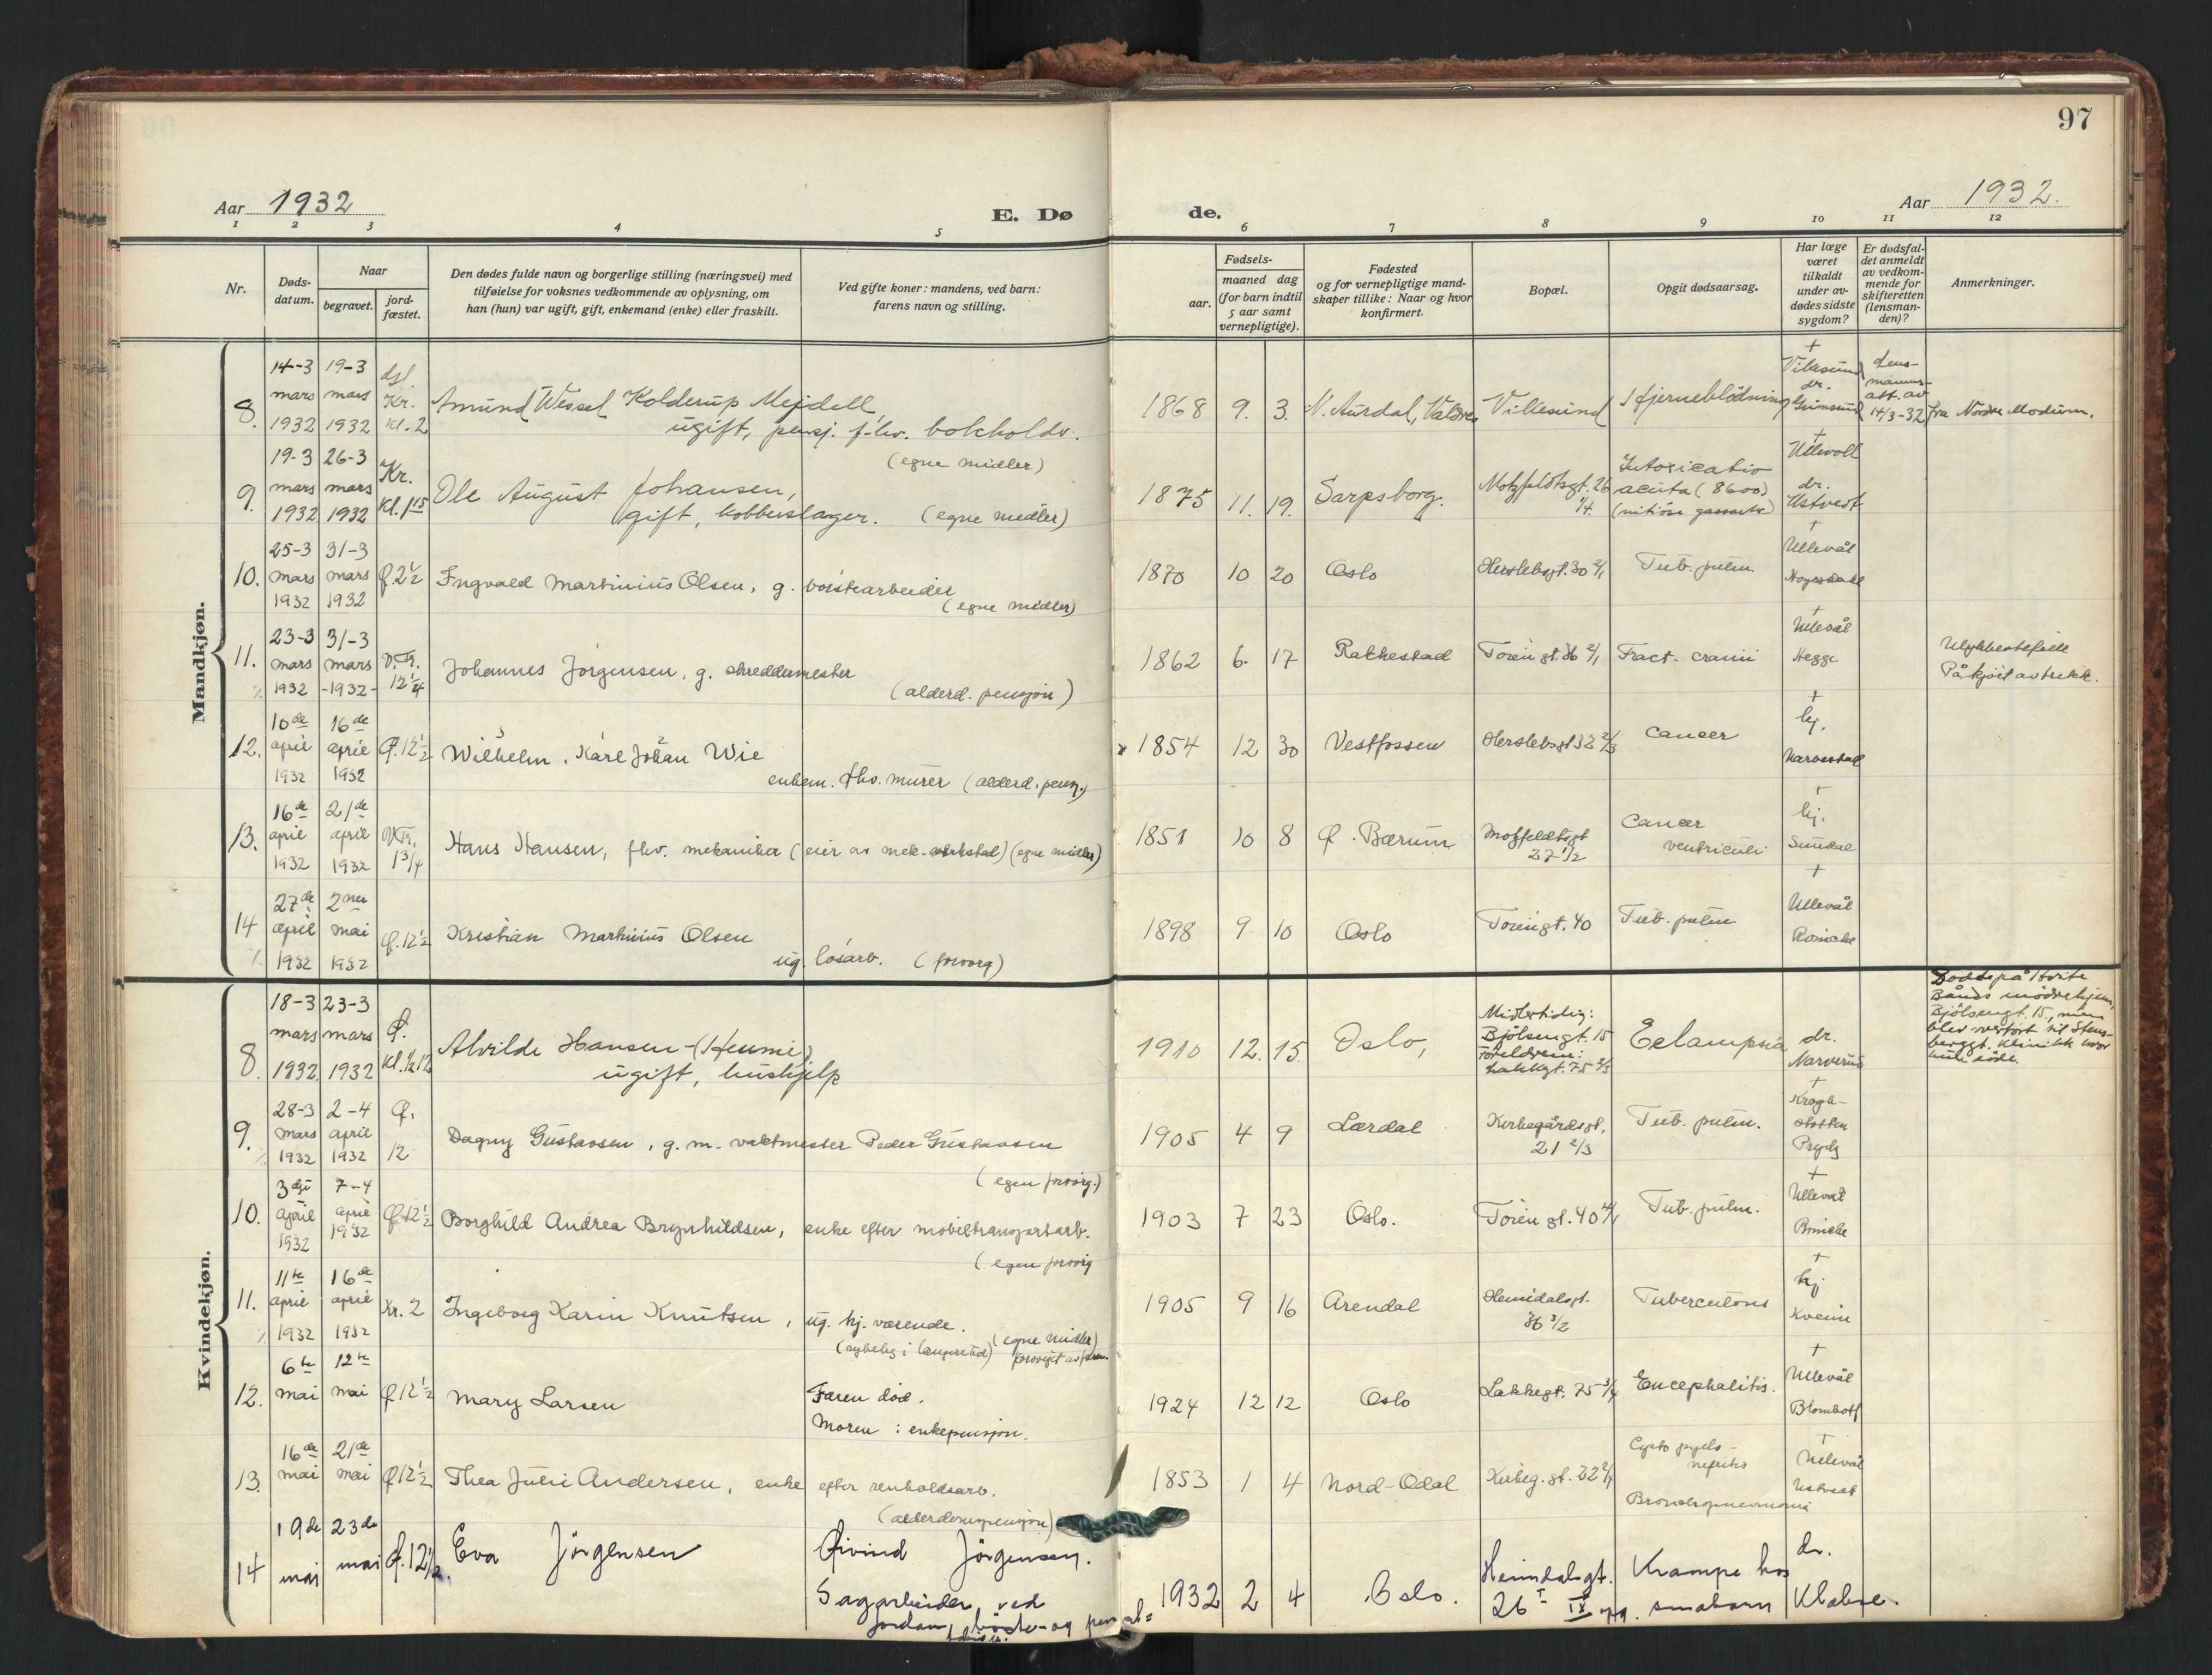 97
Aar 1932
E. Dø de.
Aar 1932.
1 2 3 4 5 6 7 8 9 10 11 12
Nr.
Døds-
datum.
Naar
begravet.
jord-
fæstet.
Den dødes fulde navn og borgerlige stilling (næringsvei) med
tilføielse for voksnes vedkommende av oplysning, om
han (hun) var ugift, gift, enkemand (enke) eller fraskilt.
Ved gifte koner: mandens, ved barn:
farens navn og stilling.
Fødsels-
aar.
maaned dag
(for barn indtil
5 aar samt
vernepligtige).
Fødested
og for vernepligtige mand-
skaper tillike: Naar og hvor
konfirmert.
Bopæl.
Opgit dødsaarsag.
Har læge
været
tilkaldt
under av-
dødes sidste
sygdom?
Er dødsfal-
det anmeldt
av vedkom-
mende for
skifteretten
(lensman-
den)?
Anmerkninger.
Mandkjøn.
8. 14-3 mars 1932 19-3 mars 1932 Kr. kl. 2
Amund Wessel Kolderup Mejdell,
ugift, pensj. f.hv. bokholder.
(egne midler)
1868 9. 3. N. Aurdal, Valdres Vikesund Hjerneblødning
Vikesund dr. Grimsund
Lens-
manns-
att. av
14/3-32
fra Nordre Modum.
9. 19-3 mars 1932 26-3 mars 1932 Kr. Kl. 1 15
Ole August Johansen,
gift, kobberslager. (egne midler)
1875 11. 19. Sarpsborg. Motzfeldtsgt. 26 1/4.
Intoxicatio
acuta (8600)
Ullevoll dr. Ustvedt
10. 25-3 mars 1932 31-3 mars 1932 Ø. 2 1/2
Ingvald Martinius Olsen, g. børstearbeider
(egne midler)
1870 10 20 Oslo Herslebsgt. 30 2/1 Tub. pulm. Ullevål
11. 23-3 mars 1932 31-3 mars -1932- V.Fr. 12 1/4
Johannes Jørgensen, g. skreddermester
(alderd. pensjon)
1862 6. 17 Rakkestad Tøiengt. 36 2/1 Fract. cranii Ullevål Hegge
Ulykkestefælle
Påkjørt av trikk.
12. 10de april 1932 16de april 1932 Ø. 12 1/2
Wilhelm, Karl Johan Wie
enkem. fhv. murer (alderd. pensj.)
1854 12 30 Vestfossen Herslebsgt 32 2/3 Cancer hj. Narvestad
13. 16de april 1932 21de april 1932 V.Fr. 1 3/4
Hans Hansen, fhv. mekaniker (eier av mek. verksted) (egne midler)
1851 10 8 Ø. Bærum Motzfeldtsgt 27 1/2
Cancer
ventriculi
hj. Sundal
14 27de april 1932 2nen mai 1932 Ø. 12 1/2
Kristian Martinius Olsen
ug. løsarb. (forsorg)
1898 9 10 Oslo Tøiengt. 40 Tub. pulm Ullevål
Kvindekjøn.
8. 18-3 mars 1932 23-3 mars 1932 Ø. Kl. 1/2 12
Alvilde Hansen-(Heumi)
ugift, hushjelp
1910 12. 15. Oslo,
Midlertidig:
Bjølsengt. 15
Foreldrene:
Lakkegt. 75 3/3
Eclampsia dr. Narverud
Døde på Hvite
Bånds mødrehjem,
Bjølsengt. 15, men
blev overført til Stens-
berggt. klinikk hvor
hun døde.
9. 28-3 mars 1932 2-4 april 1932 Ø. 12
Dagny Gustavsen, g. m. vaktmester Peder Gustavsen
(egen forsørg.)
1905 4 9 Lærdal Kirkegårdsgt. 21 2/3 Tub. pulm.
Krogh-
støtten
Prydz
10. 3dje april 1932 7-4 april 1932 Ø 12 1/2
Borghild Andrea Brynhildsen, enke efter mobiltransportarb.
(egen forsørg
1903 7 23 Oslo. Tøiengt. 40 4/1 Tub. pulm. Ullevål
11. 11te april 1932 16de april 1932 Kr. 2
Ingeborg Karin Knutsen, ug. hj. værende.
(sykelig i længere tid) (egne midler)
forsørget av faren.
1905 9 16 Arendal Heimdalsgt. 36 3/2 Tuberculosis hj Kveim
12. 6te mai 12te mai Ø 12 1/2
Mary Larsen
Faren død.
Moren: enkepensjon.
1924 12 12 Oslo Lakkegt. 75 3/4 Encephalitis. Ullevål
13. 16de mai 21de mai Ø 12 1/2
Thea Julie Andersen, enke efter renholdsarb.
(alderdomspensjon)
1853 1 4 Nord-Odal Kirkeg. gt. 22 2/1
Cysto pyelo-
nefritis
Bronchopneumoni
Ullevål Ustvedt
14 19de mai 23de mai Ø. 12 1/2.
Eva Jörgensen
Øivind Jörgensen.
Sagarbeider ved
Jordan, børste- og pensel=
fabrik.
1932 2 4 Oslo. Heimdalsgt. 26 I IX opg.
Krampe hos
småbarn
dr.